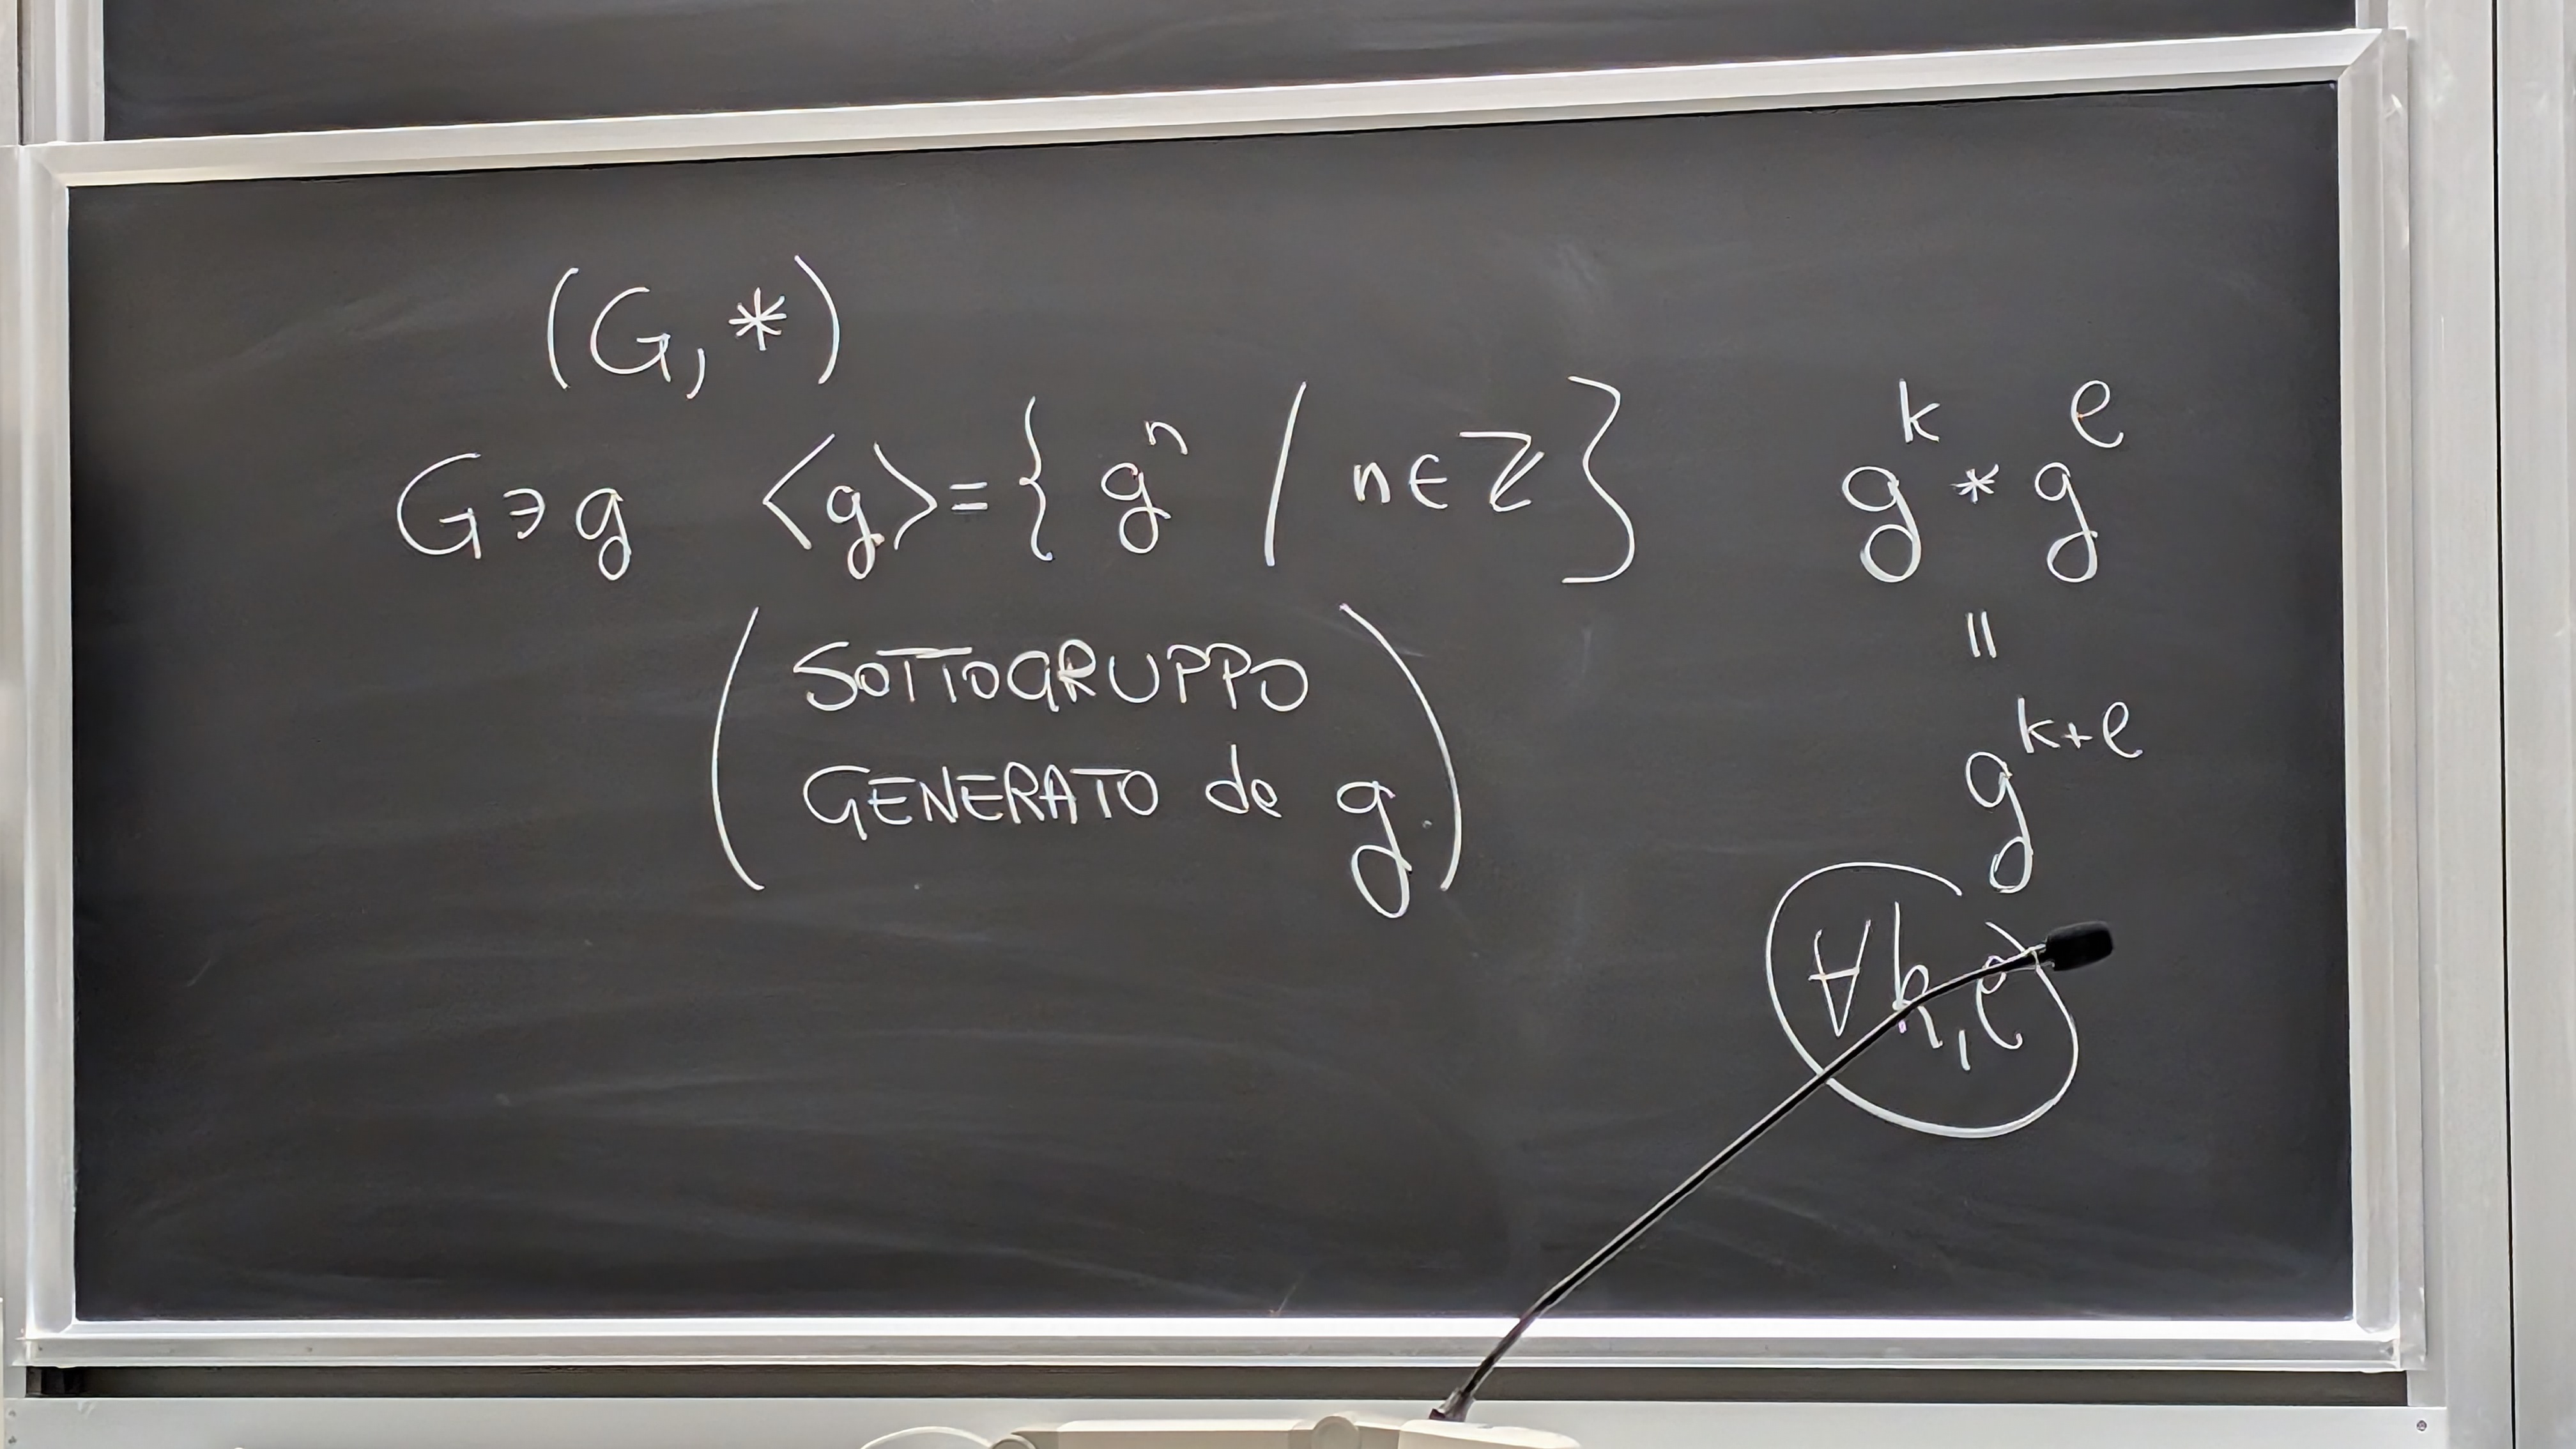 (G, *)
G ∋ g ⟨g⟩ = { gⁿ / n ∈ ℤ }
(SOTTOGRUPPO
GENERATO da g)
g^k * g^ℓ
=
g^{k+ℓ}
∀ k, ℓ